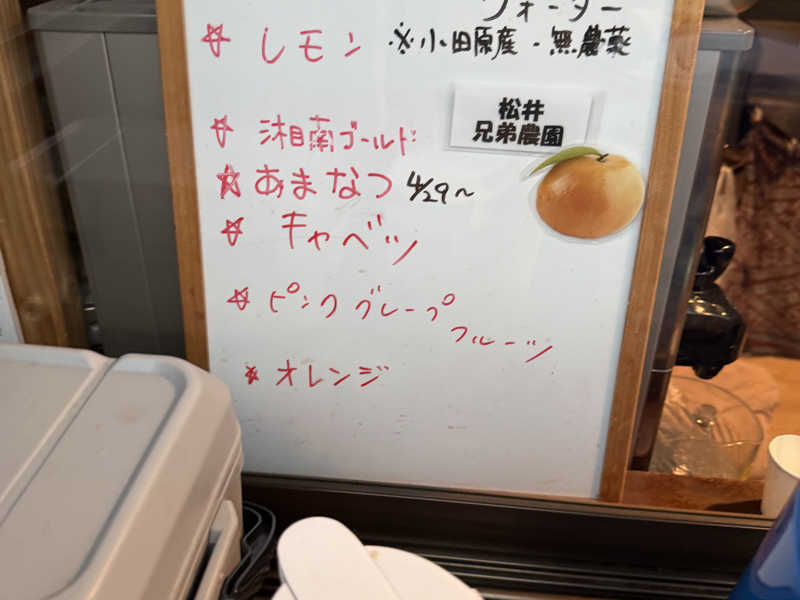 ウォーター
☆ レモン ※小田原産・無農薬
松井
兄弟農園
☆ 湘南ゴールド
☆ あまなつ 4/29～
☆ キャベツ
☆ ピンクグレープ
フルーツ
☆ オレンジ